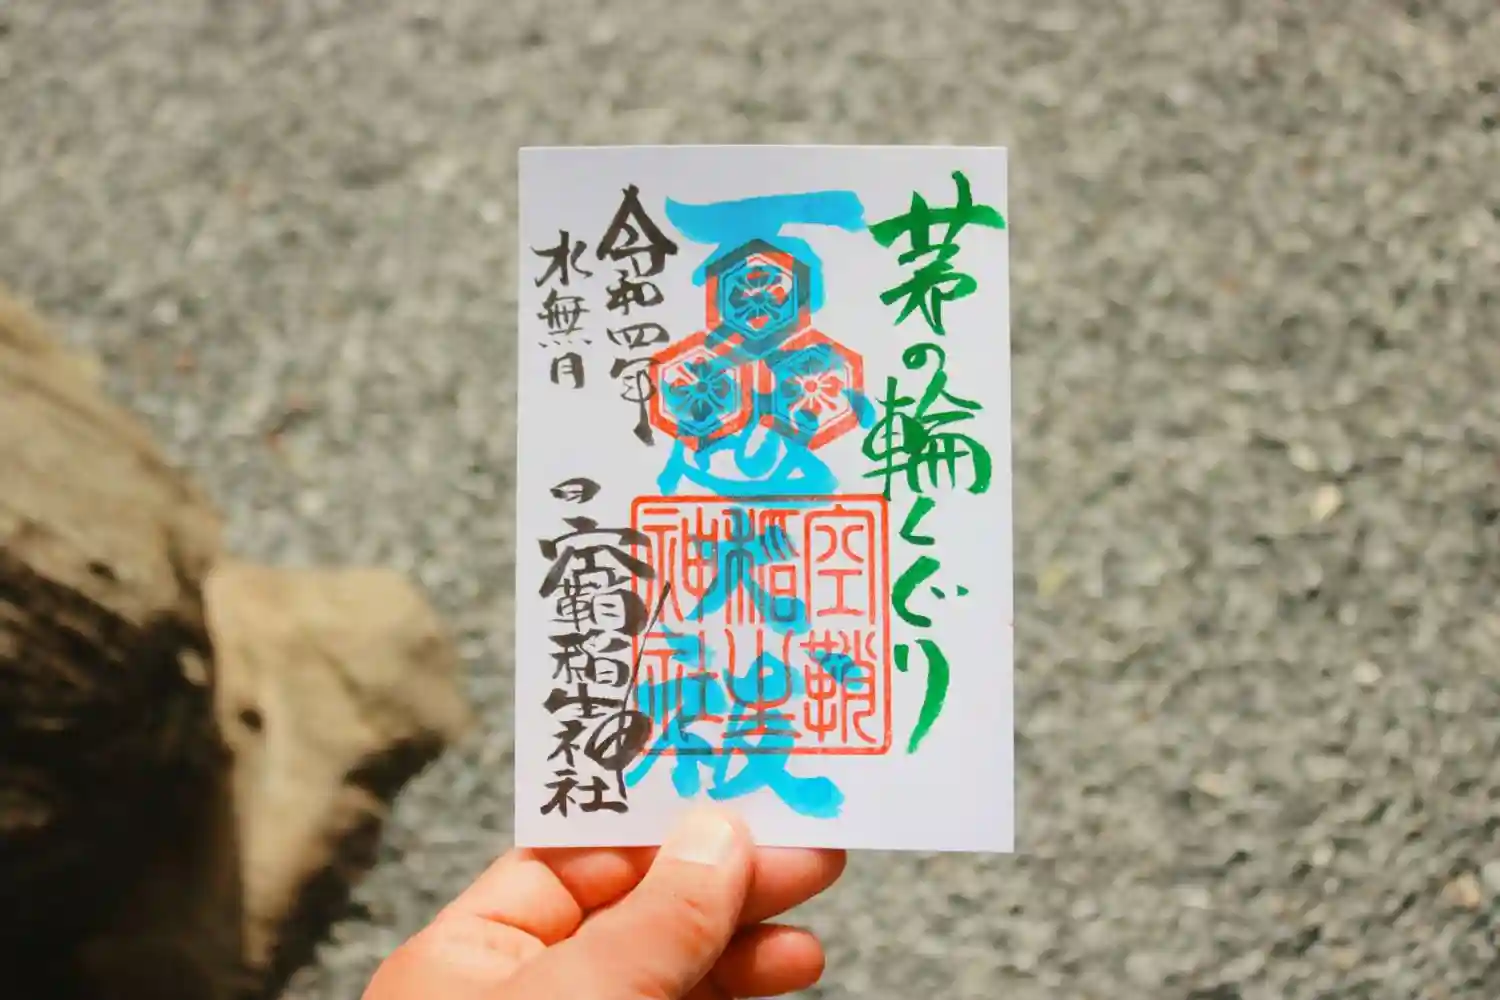 茅の輪くぐり
夏越大祓
空鞘
稲生
神社
令和四年
水無月
日
空鞘稲生神社